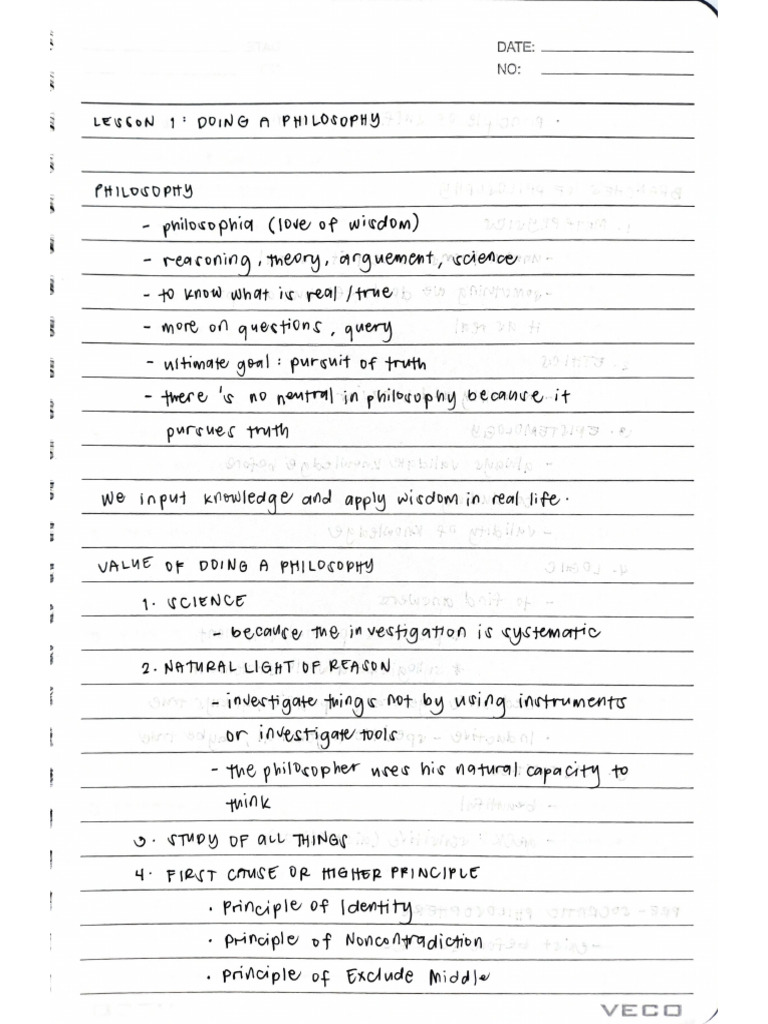 DATE:
NO:
LESSON 1: DOING A PHILOSOPHY
PHILOSOPHY
- philosophia (love of wisdom)
- reasoning, theory, arguement, science
- to know what is real/true
- more on questions, query
- ultimate goal: pursuit of truth
- there's no neutral in philosophy because it
pursues truth
We input knowledge and apply wisdom in real life.
VALUE OF DOING A PHILOSOPHY
1. SCIENCE
- because the investigation is systematic
2. NATURAL LIGHT OF REASON
- investigate things not by using instruments
or investigate tools
- the philosopher uses his natural capacity to
think
3. STUDY OF ALL THINGS
4. FIRST CAUSE OR HIGHER PRINCIPLE
• Principle of Identity
• Principle of Noncontradiction
• Principle of Exclude Middle
VECO